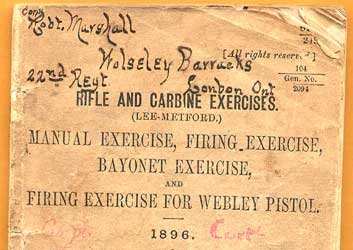 Corp
Robt. Marshall
245
[All rights reserve
Wolseley Barracks
104
Gen. No.
2094
22nd Regt. London Ont
RIFLE AND CARBINE EXERCISES.
(LEE-METFORD.)
MANUAL EXERCISE, FIRING EXERCISE,
BAYONET EXERCISE,
AND
FIRING EXERCISE FOR WEBLEY PISTOL.
1896.